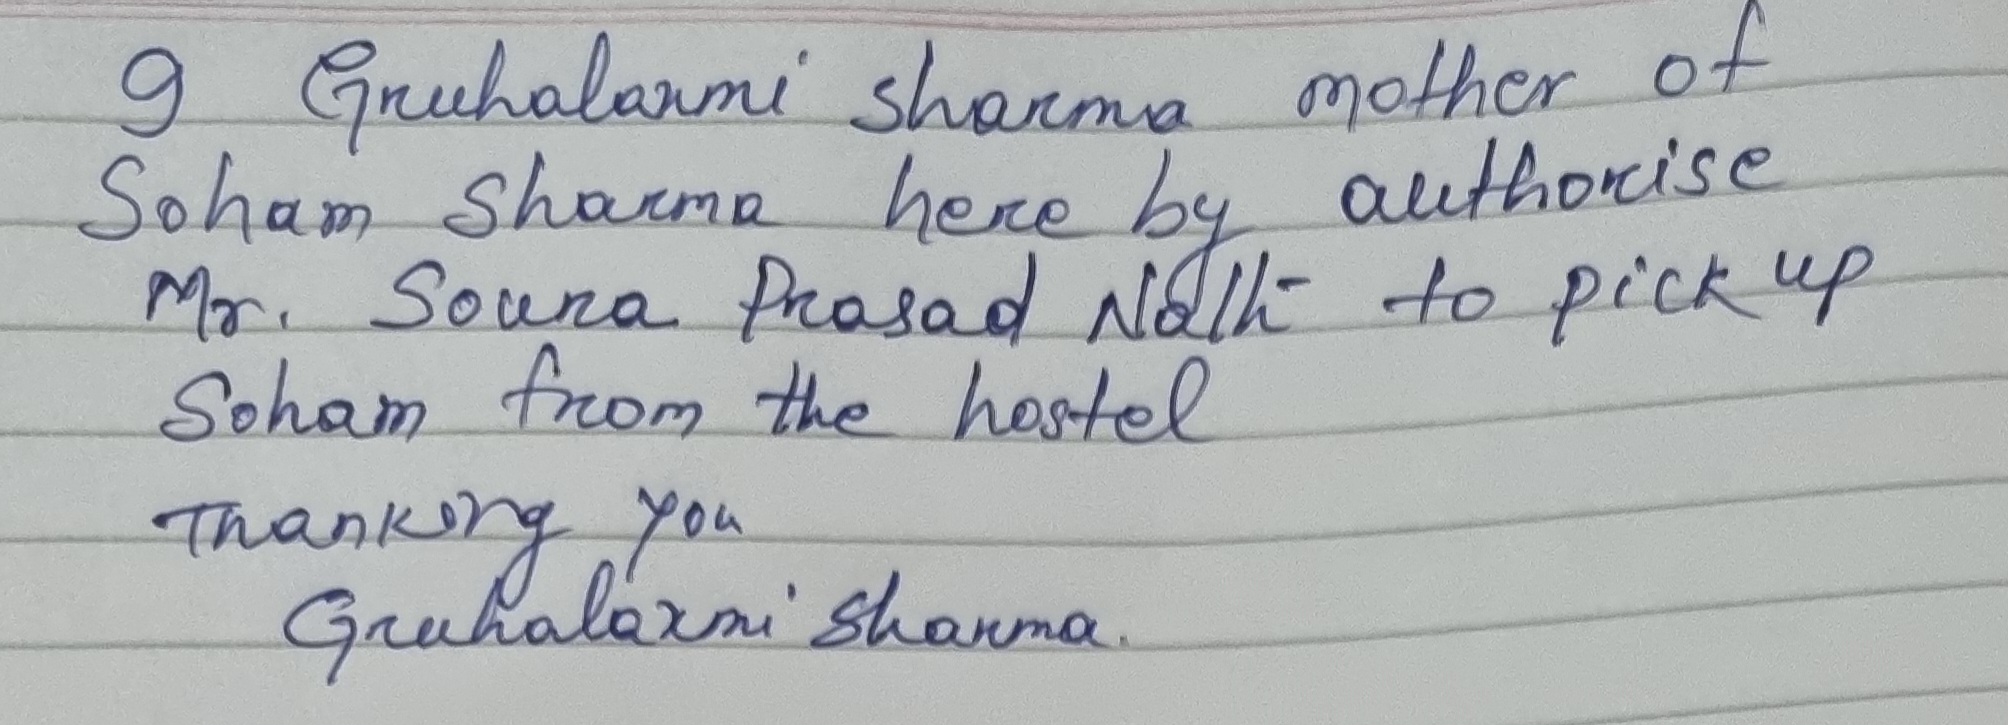 I Gruhalaxmi Sharma mother of
Soham Sharma here by authorise
Mr. Soura Prasad Nath to pick up
Soham from the hostel
Thanking you
Gruhalaxmi Sharma.